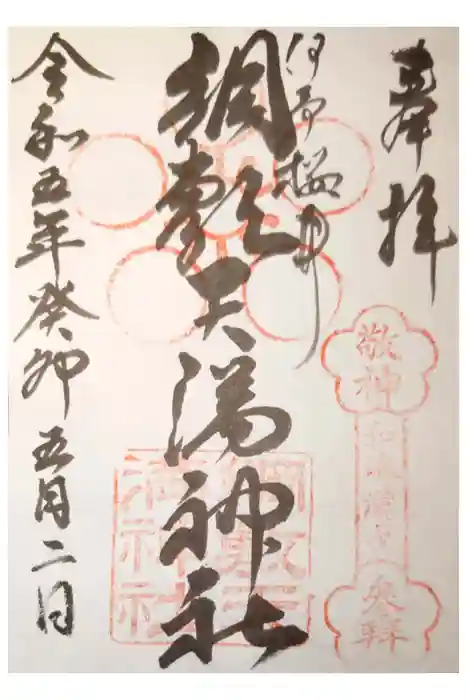 奉拝
伊予櫻井
綱敷天満神社
令和五年癸卯五月二日
敬神
綱敷天
満神社